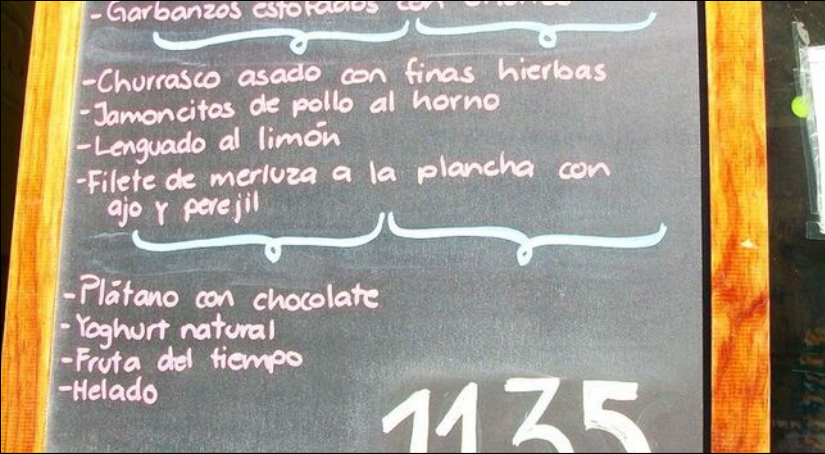 -Garbanzos estofados con
-Churrasco asado con finas hierbas
-Jamoncitos de pollo al horno
-Lenguado al limón
-Filete de merluza a la plancha con
ajo y perejil
-Plátano con chocolate
-Yoghurt natural
-Fruta del tiempo
-Helado
1135